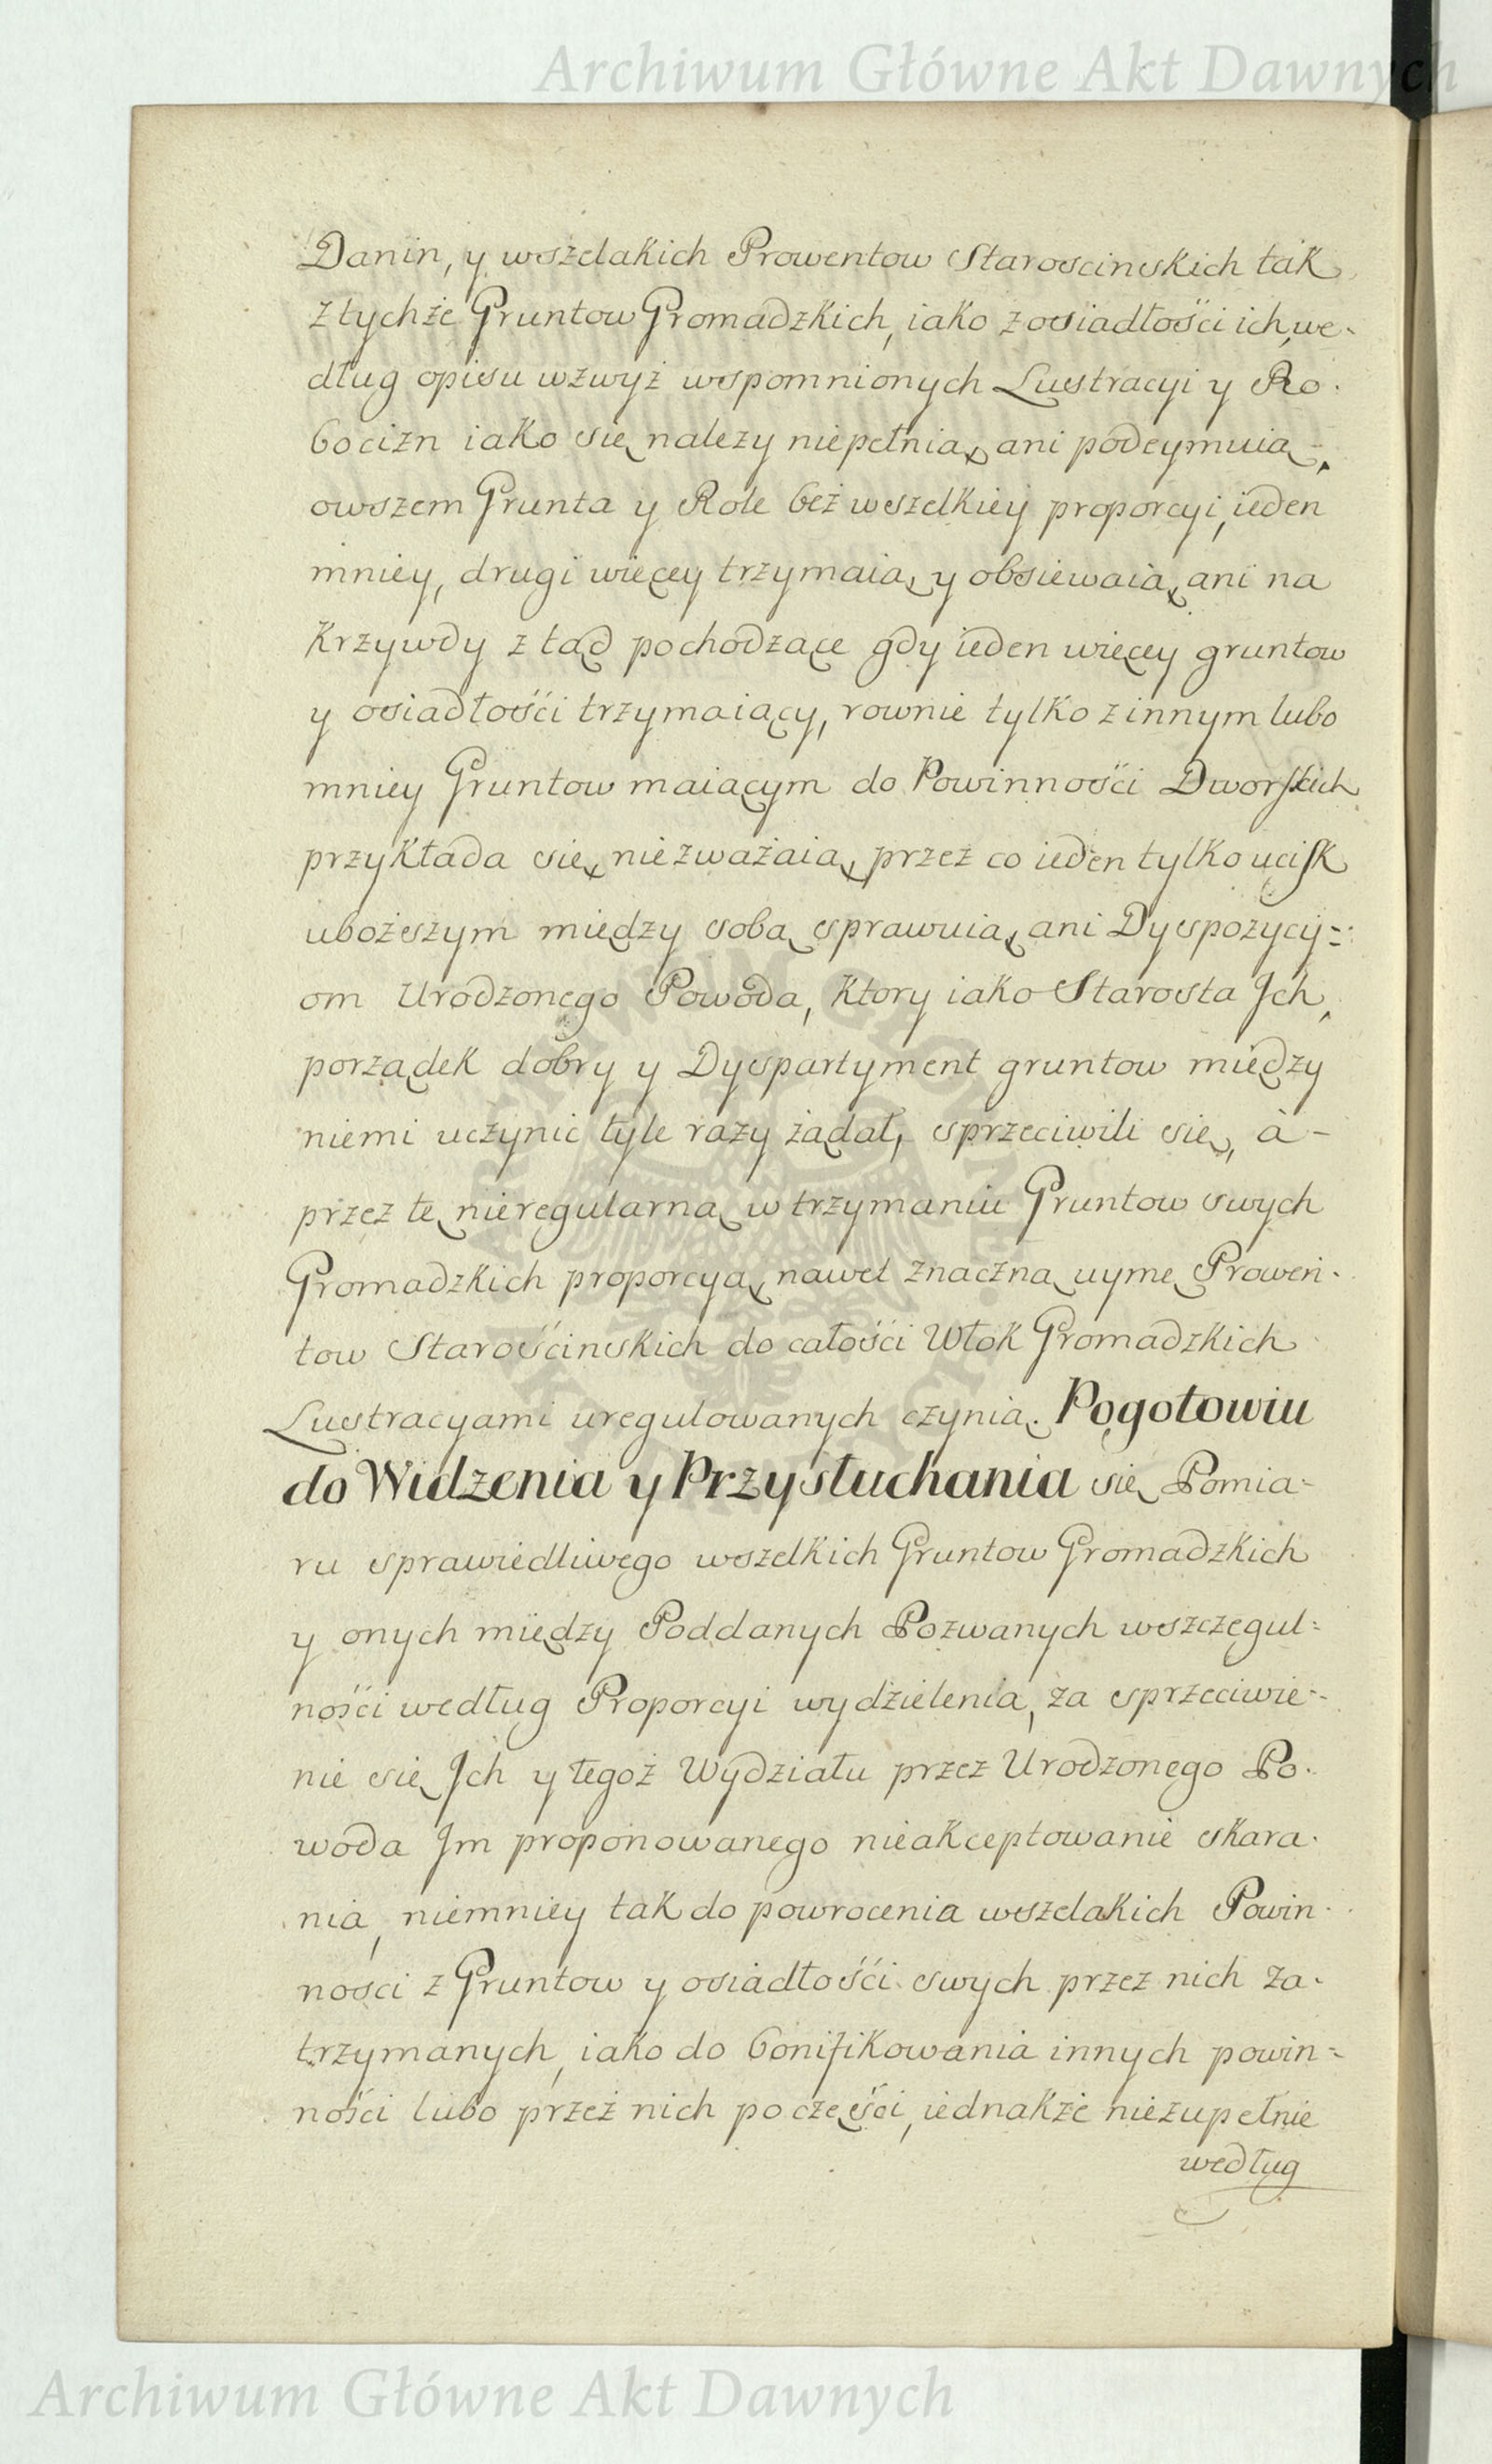 Archiwum Główne Akt Dawnych
Danin, y wszelakich Prowentow Staroscinskich tak
z tychże Gruntow Gromadzkich, iako z osiadłości ich, we-
dług opisu wzwyż wspomnionych Lustracyi y Ro-
bocizn iako się należy niepełnią, ani podeymuią,
owszem Grunta y Role bez wszelkiey proporcyi, ieden
mniey, drugi więcey trzymaią, y obsiewaią, ani na
Krzywdy z tąd pochodzące gdy ieden więcey gruntow
y osiadłości trzymaiący, rownie tylko z innym lubo
mniey Gruntow maiącym do Powinności Dworskich
przykłada się, niezważaią, przez co ieden tylko ucisk
uboższym między sobą sprawuią, ani Dyspozycy=
om Urodzonego Powoda, ktory iako Starosta Ich,
porządek dobry y Dyspartyment gruntow między
niemi uczynic tyle razy żądał, sprzeciwili się, à-
przez tę nieregularną w trzymaniu Gruntow swych
Gromadzkich proporcyą, nawet znaczną uymę Prowen-
tow Starościnskich do całości Włok Gromadzkich
Lustracyami uregulowanych czynią. Pogotowiu
do Widzenia y Przysłuchania się Pomia-
ru sprawiedliwego wszelkich Gruntow Gromadzkich
y onych między Poddanych Pozwanych wszczegul=
ności według Proporcyi wydzielenia, za sprzeciwie-
nie się Ich y tegoż Wydziału przez Urodzonego Po-
woda Im proponowanego nieakceptowanie skara-
nia, niemniey tak do powrocenia wszelakich Powin-
nosci z Gruntow y osiadłości swych przez nich za-
trzymanych, iako do bonifikowania innych powin=
ności lubo przez nich po części, iednakże niezupełnie
według
Archiwum Główne Akt Dawnych